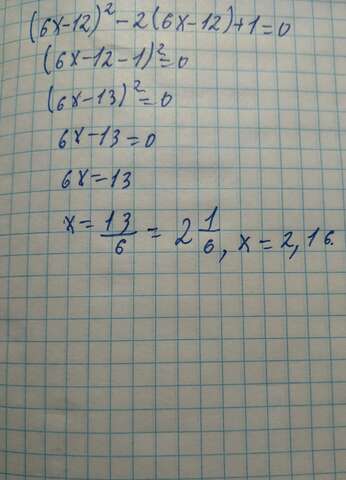 (6x-12)²-2(6x-12)+1=0
(6x-12-1)²=0
(6x-13)²=0
6x-13=0
6x=13
x=13/6=2 1/6, x=2,16.